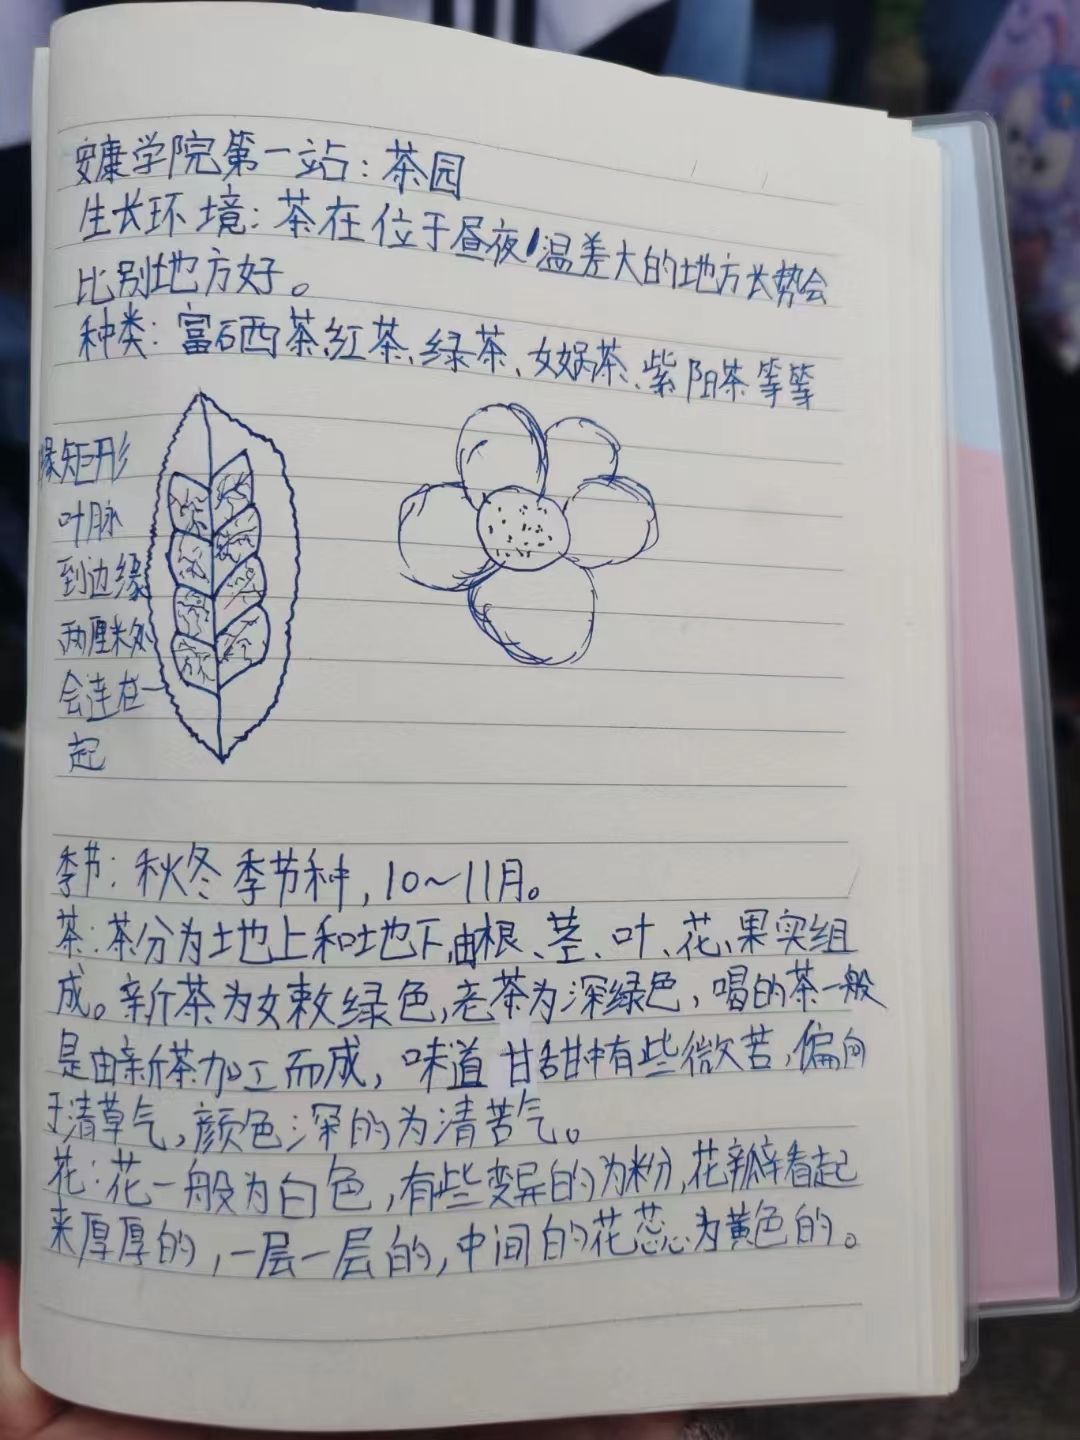 安康学院第一站：茶园
生长环境：茶在位于昼夜温差大的地方长势会
比别地方好。
种类：富硒茶、红茶、绿茶、女娲茶、紫阳茶等等
缘矩形
叶脉
到边缘
两厘米处
会连在一
起
季节：秋冬季节种，10～11月。
茶：茶分为土地上和地下，由根、茎、叶、花、果实组
成。新茶为嫩绿色，老茶为深绿色，喝的茶一般
是由新茶加工而成，味道甘甜中有些微苦，偏向
于清草气，颜色深的为清苦气。
花：花一般为白色，有些变异的为粉，花瓣看起
来厚厚的，一层一层的，中间的花蕊为黄色的。